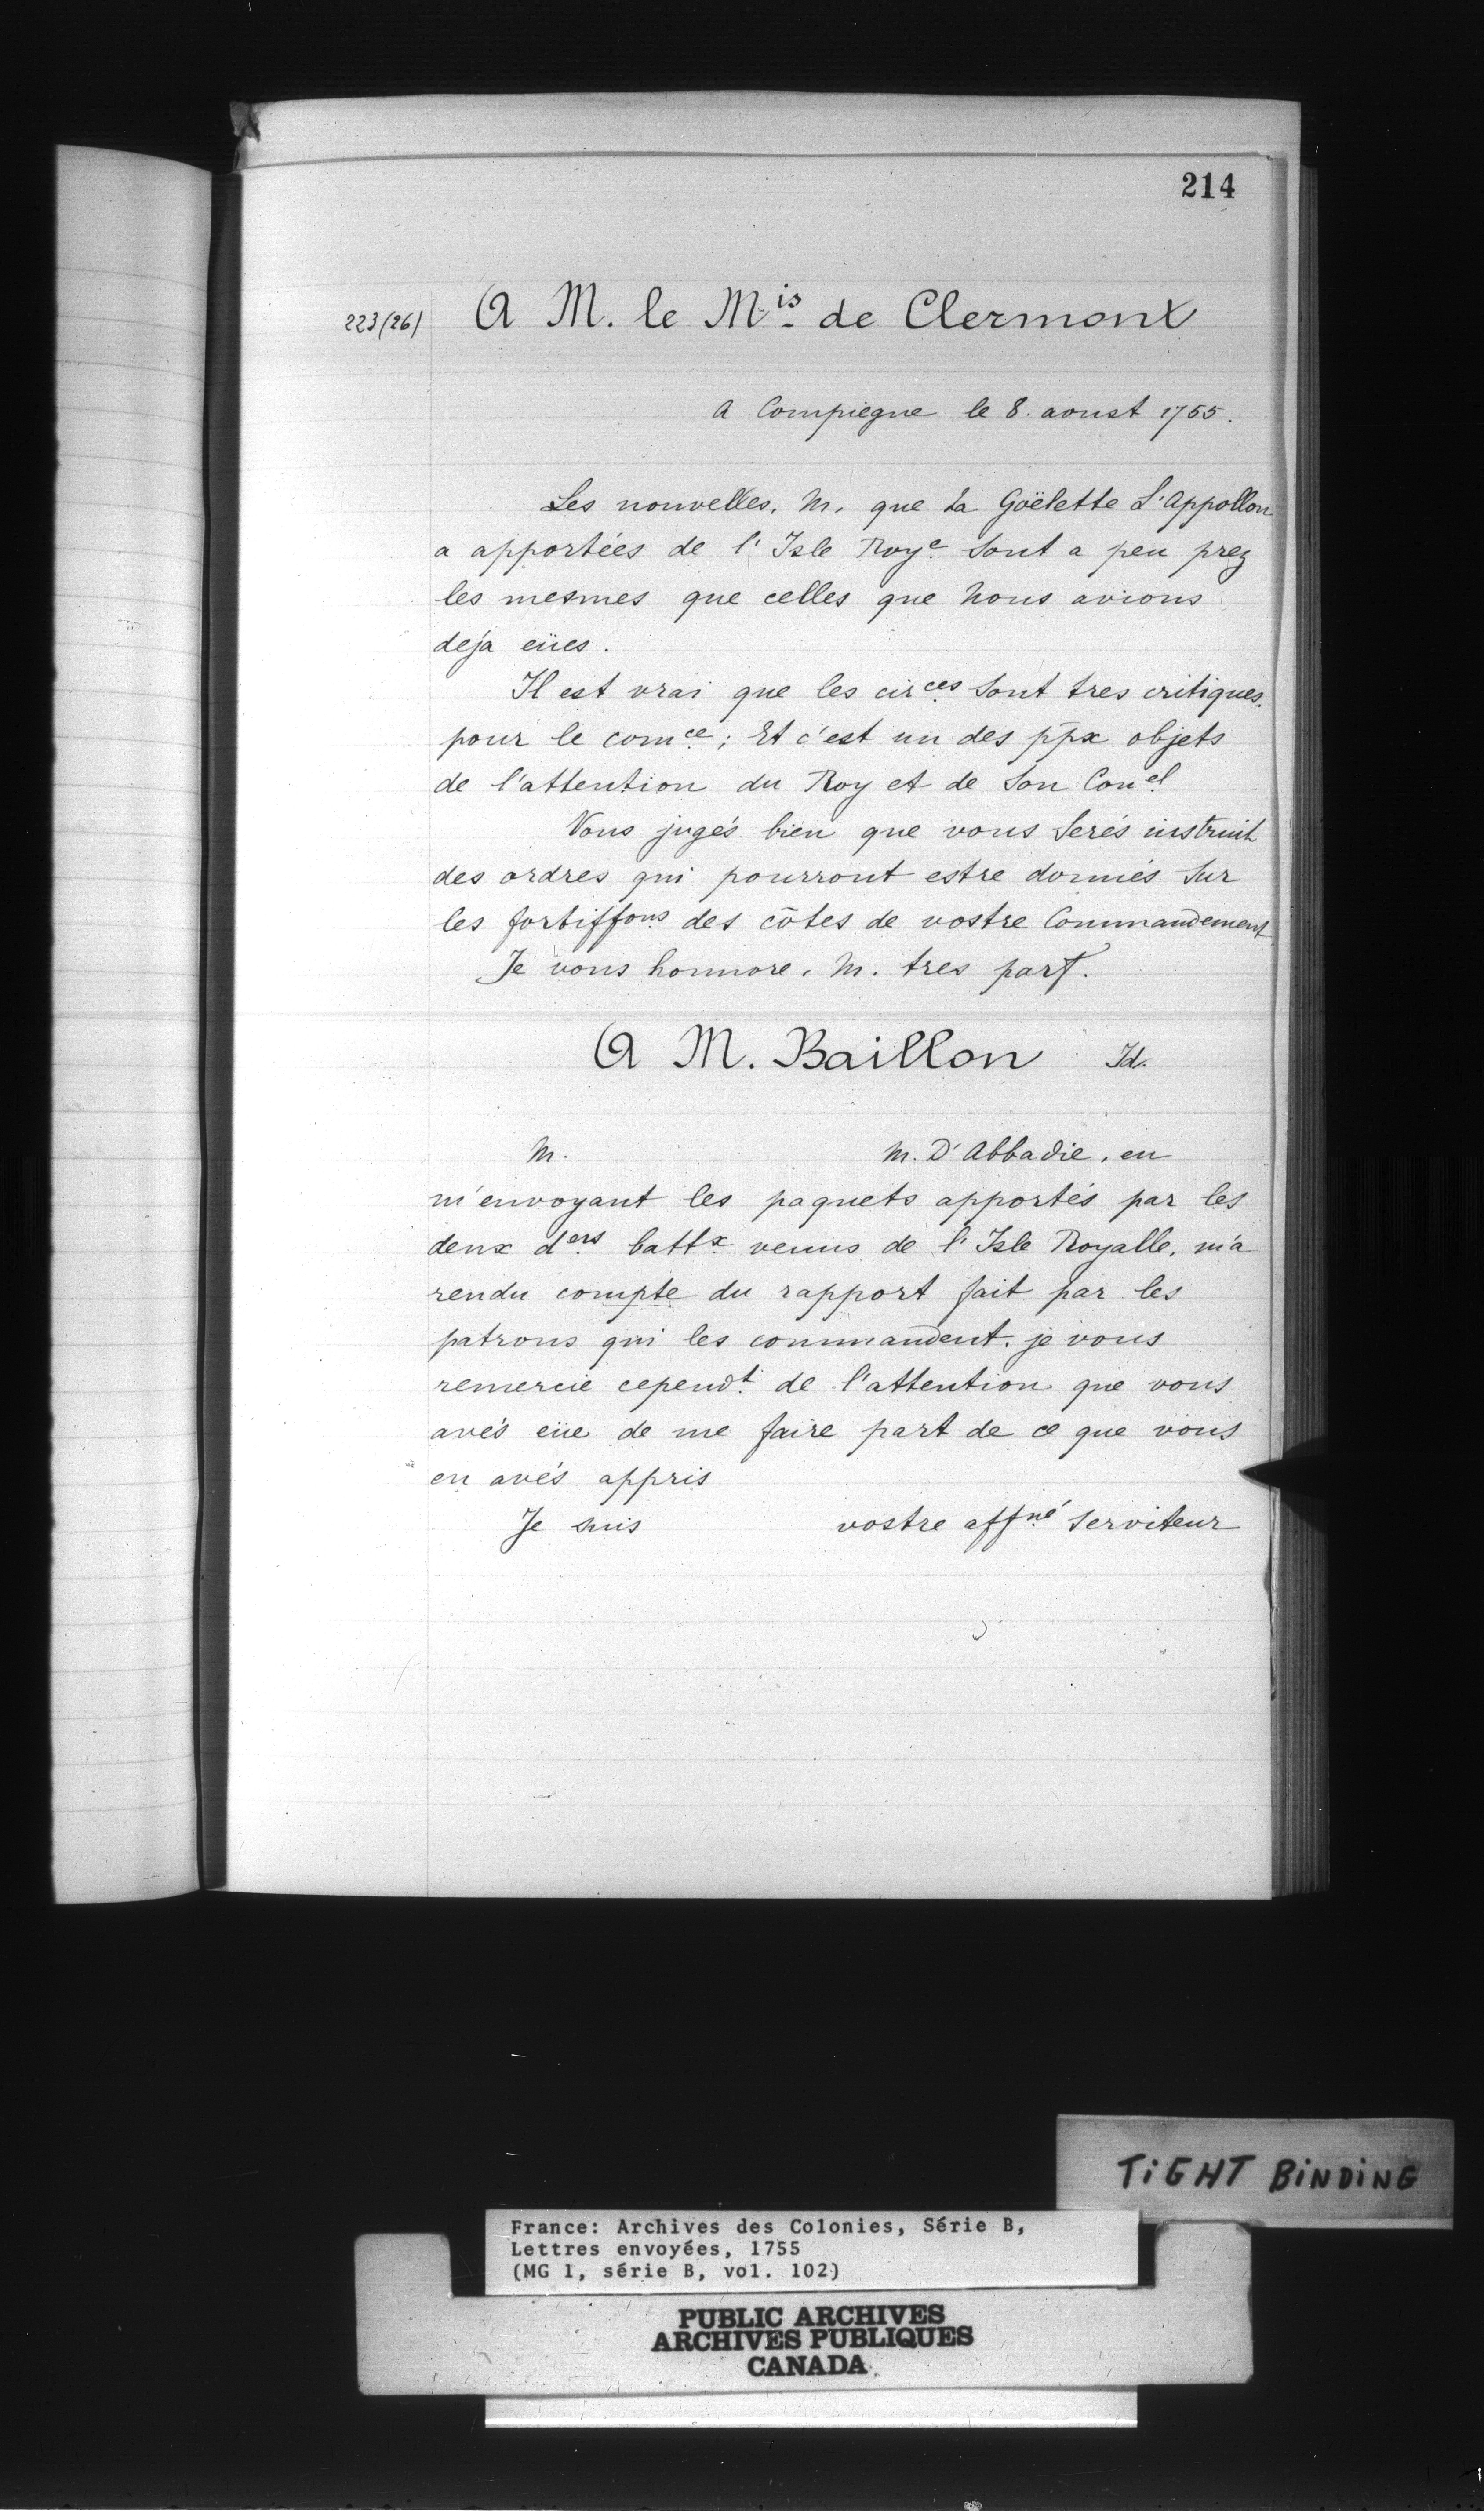 214
223(26) A M. le Mis de Clermont
A Compiegne le 8. aoust 1755.
Les nouvelles, M, que La Goëlette L'Appollon
a apportées de l'Isle Roye. Sont a peu prez
les mesmes que celles que Nous avions
deja eües.
Il est vrai que les circes Sont tres critiques.
pour le comce; Et c'est un des pp̄x objets
de l'attention du Roy et de Son Conel
Vous jugés bien que vous Serés instruit
des ordres qui pourront estre donnés Sur
les fortiffons des côtes de vostre Commandement
Je vous honnore, M. tres part.
A M. Baillon Id.
M. M. D'Abbadie, en
m'envoyant les paquets apportés par les
deux ders battx venus de l'Isle Royalle, m'a
rendu compte du rapport fait par les
patrons qui les commandent. je vous
remercie cependt de l'attention que vous
avés eüe de me faire part de ce que vous
en avés appris
Je suis vostre affné Serviteur
TiGHT BiNDiNG
France: Archives des Colonies, Série B,
Lettres envoyées, 1755
(MG 1, série B, vol. 102)
PUBLIC ARCHIVES
ARCHIVES PUBLIQUES
CANADA